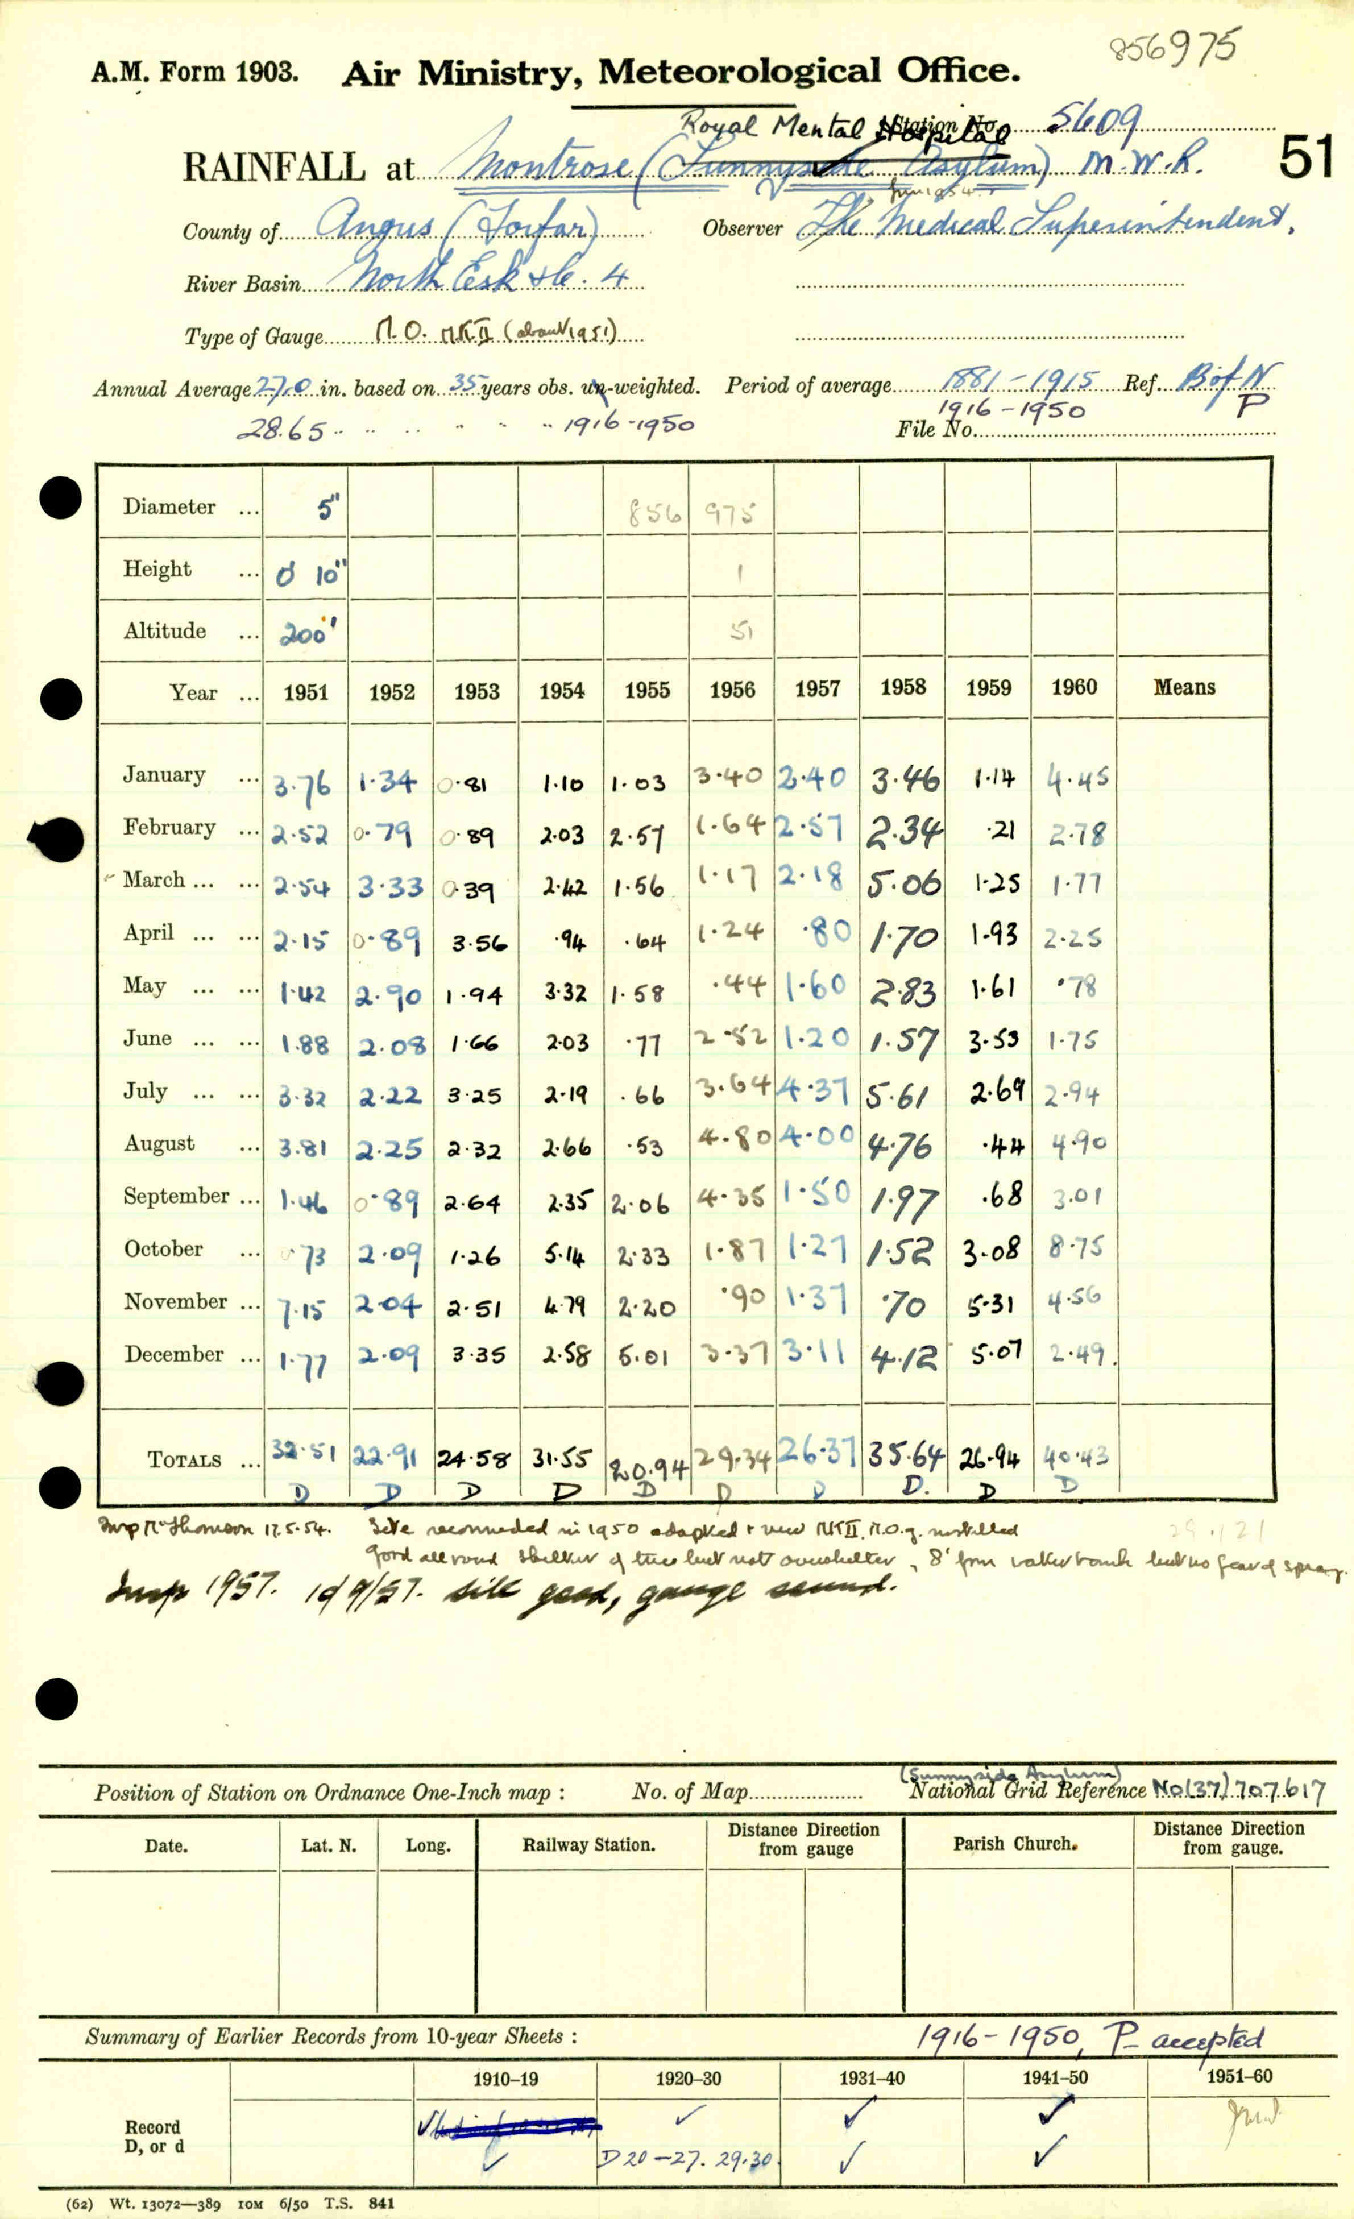 856975
A.M. Form 1903. Air Ministry, Meteorological Office.
Royal Mental Hospital Station No. 5609
RAINFALL at Montrose (Sunnyside Asylum) M.W.R. 51
County of Angus (Forfar) Observer The Medical Superintendent.
River Basin North Esk &c. 4
Type of Gauge M.O. MKII (about 1951)
Annual Average 27.0 in. based on 35 years obs. un-weighted. Period of average 1881-1915 Ref. B of N
28.65 .. .. .. .. .. .. 1916-1950 1916-1950 P
File No.
Diameter ... 5" 856 975
Height ... 0' 10" 1
Altitude ... 200' 51
Year ... 1951 1952 1953 1954 1955 1956 1957 1958 1959 1960 Means
January ... 3.76 1.34 0.81 1.10 1.03 3.40 2.40 3.46 1.14 4.45
February ... 2.52 0.79 0.89 2.03 2.57 1.64 2.57 2.34 .21 2.78
March ... ... 2.54 3.33 0.39 2.42 1.56 1.17 2.18 5.06 1.25 1.77
April ... ... 2.15 0.89 3.56 .94 .64 1.24 .80 1.70 1.93 2.25
May ... ... 1.42 2.90 1.94 3.32 1.58 .44 1.60 2.83 1.61 .78
June ... ... 1.88 2.08 1.66 2.03 .77 2.52 1.20 1.57 3.53 1.75
July ... ... 3.32 2.22 3.25 2.19 .66 3.64 4.37 5.61 2.69 2.94
August ... 3.81 2.25 2.32 2.66 .53 4.80 4.00 4.76 .44 4.90
September ... 1.46 0.89 2.64 2.35 2.06 4.35 1.50 1.97 .68 3.01
October ... .73 2.09 1.26 5.14 2.33 1.87 1.27 1.52 3.08 8.75
November ... 7.15 2.04 2.51 4.79 2.20 .90 1.37 .70 5.31 4.56
December ... 1.77 2.09 3.35 2.58 5.01 3.37 3.11 4.12 5.07 2.49
TOTALS ... 32.51 22.91 24.58 31.55 20.94 29.34 26.37 35.64 26.94 40.43
D D D D D D D D. D D
Insp Mr Thomson 17.5.54. Site in 1950 adopted + new MKII. M.O.g. installed
good all round shelter of trees but not overshelter, 8' from but no fear of spray.
Insp 1957. 10/9/57. site good, gauge sound.
(Sunnyside Asylum)
Position of Station on Ordnance One-Inch map : No. of Map National Grid Reference NO(37)707.617
Date. Lat. N. Long. Railway Station. Distance from Direction gauge Parish Church. Distance from Direction gauge.
Summary of Earlier Records from 10-year Sheets : 1916-1950, P accepted
1910–19 1920–30 1931–40 1941–50 1951–60
Record
D, or d D 20-27. 29.30
(62) Wt. 13072—389 10M 6/50 T.S. 841